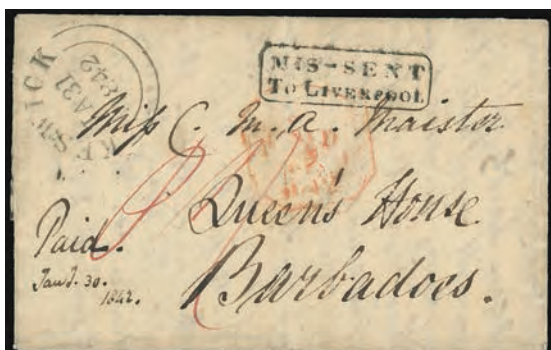 KESWICK
JA 31
1842
MIS-SENT
TO LIVERPOOL
Miss C. M. A. Maister
Queen's House
Barbadoes.
Paid.
Jany. 30.
1842.